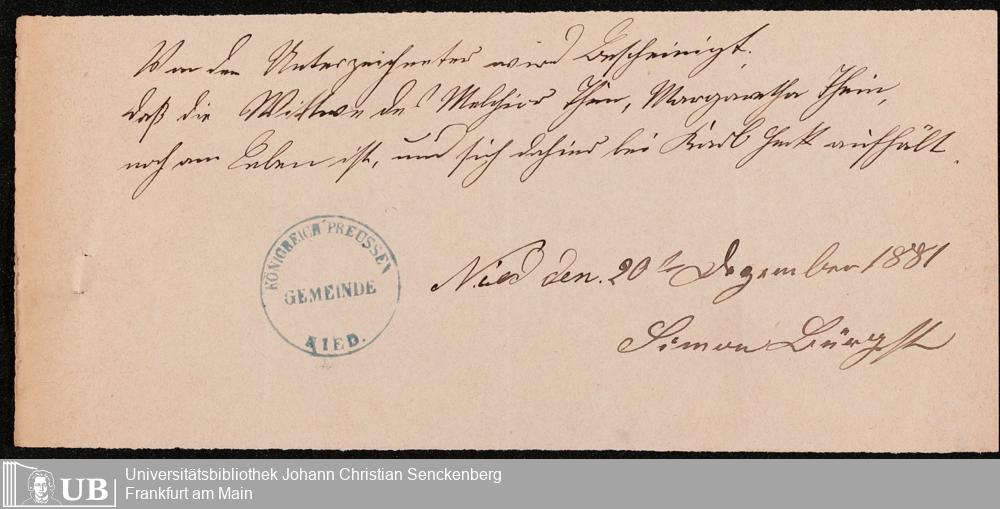 Von dem Unterzeichneten wird bescheinigt,
daß die Wittwe des Melchior Thein, Margaretha Thein,
noch am Leben ist, und sich dahier bei Karl Heckt aufhält.
KÖNIGREICH PREUSSEN
GEMEINDE
NIED.
Nied den. 20ten Dezember 1881
Simon Bürgst
UB
Universitätsbibliothek Johann Christian Senckenberg
Frankfurt am Main